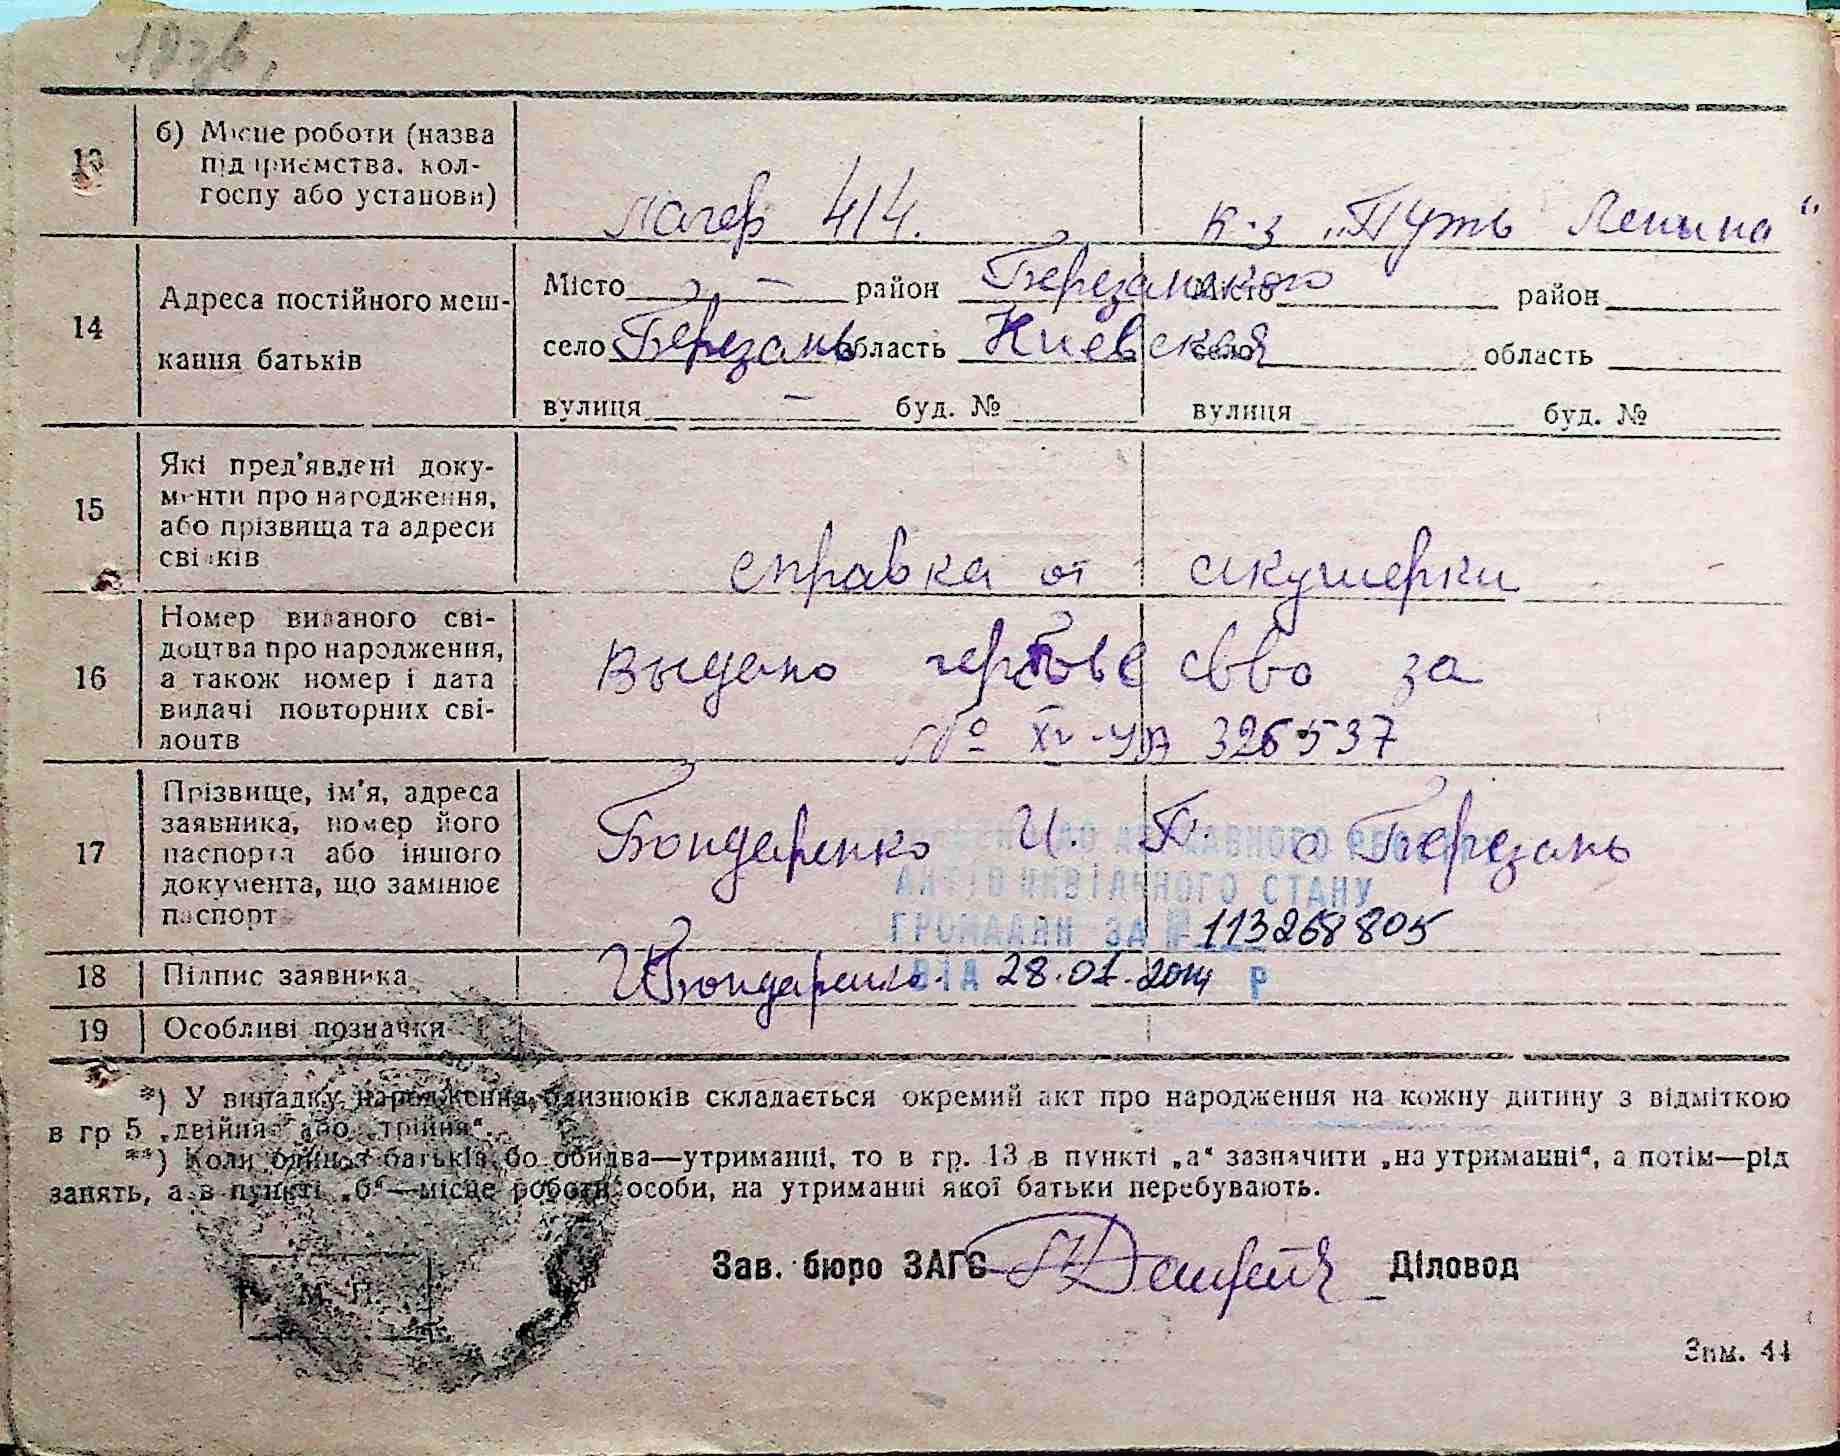 13 б) Місце роботи (назва
підприємства, кол-
госпу або установи)
лагер 414. к-з „Путь Ленина“
14 Адреса постійного меш-
кання батьків
Місто — район Березанского Місто район
село Березань область Киевская село область
вулиця — буд. № вулиця буд. №
15 Які пред'явлені доку-
менти про народження,
або прізвища та адреси
свідків
справка от акушерки
16 Номер виданого сві-
доцтва про народження,
а також номер і дата
видачі повторних сві-
доцтв
Выдано св-во за
№ XV-УР 326537
17 Прізвище, ім'я, адреса
заявника, номер його
паспорта або іншого
документа, що замінює
паспорт
Бондаренко И. П. с Березань
ДЕРЖАВНОГО РЕЄСТРУ
АКТІВ ЦИВІЛЬНОГО СТАНУ
ГРОМАДЯН ЗА № 113268805
18 Підпис заявника Бондаренко
ВІД 28.01.2014 р
19 Особливі позначки
*) У випадку народження близнюків складається окремий акт про народження на кожну дитину з відміткою
в гр 5 „двійня“ або „трійня“.
**) Коли один з батьків бо обидва—утриманці, то в гр. 13 в пункті „а“ зазначити „на утриманні“, а потім—рід
занять, а в пункті „б“—місце роботи особи, на утриманні якої батьки перебувають.
Зав. бюро ЗАГС Діловод
М. П.
Зам. 44